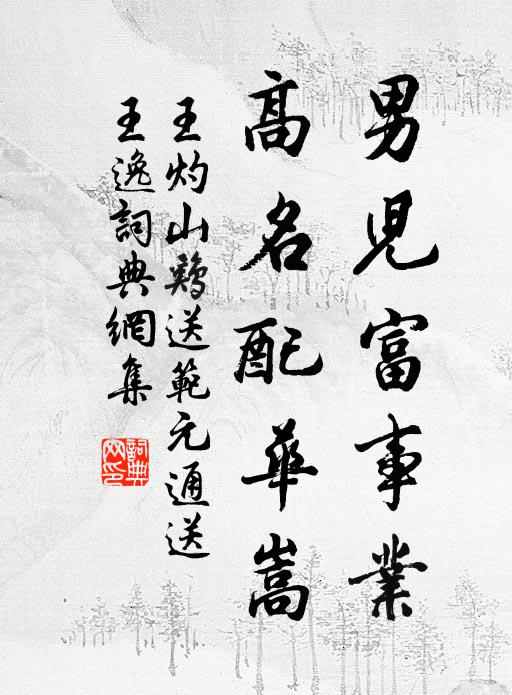 男兒富事業
高名配華嵩
王灼山鷄送範元通送
王逸詞典網集
詞典网印